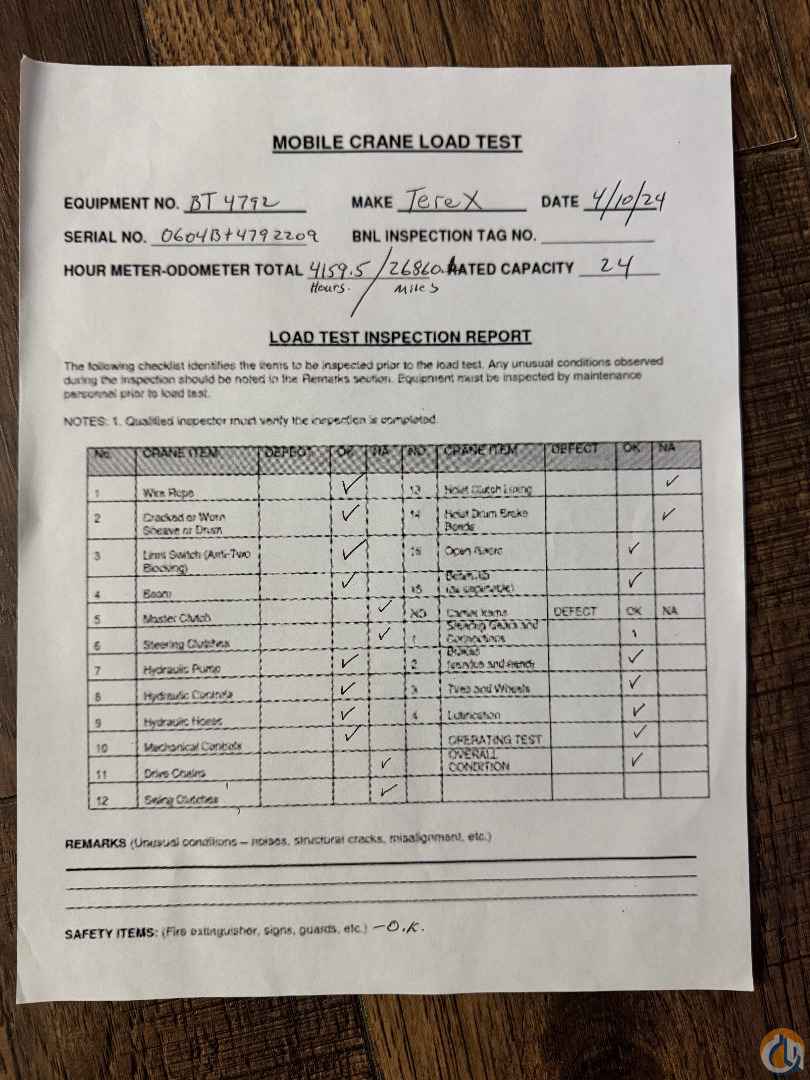 MOBILE CRANE LOAD TEST
EQUIPMENT NO. BT 4792 MAKE Terex DATE 4/10/24
SERIAL NO. 0604Bt4792209 BNL INSPECTION TAG NO.
HOUR METER-ODOMETER TOTAL 4159.5 / 26860. RATED CAPACITY 24
Hours. Miles
LOAD TEST INSPECTION REPORT
The following checklist identifies the items to be inspected prior to the load test. Any unusual conditions observed
during the inspection should be noted in the Remarks section. Equipment must be inspected by maintenance
personnel prior to load test.
NOTES: 1. Qualified inspector must verify the inspection is completed.
No CRANE ITEM DEFECT OK NA NO CRANE ITEM DEFECT OK NA
1 Wire Rope ✓ 13 Hoist Clutch Lining ✓
2 Cracked or Worn Sheave or Drum ✓ 14 Hoist Drum Brake Bands ✓
3 Limit Switch (Anti-Two Blocking) ✓ 15 Open Gears ✓
4 Boom ✓ (as applicable) ✓
5 Master Clutch ✓ NO Carrier Items DEFECT OK NA
6 Steering Clutches ✓ 1 Steering Gears and Connections
7 Hydraulic Pump ✓ 2 Brakes ✓
8 Hydraulic Controls ✓ 3 Tires and Wheels ✓
9 Hydraulic Hoses ✓ 4 Lubrication ✓
10 Mechanical Controls ✓ OPERATING TEST ✓
11 Drive Chains ✓ OVERALL CONDITION ✓
12 Swing Clutches ✓
REMARKS (Unusual conditions – noises, structural cracks, misalignment, etc.)
SAFETY ITEMS: (Fire extinguisher, signs, guards, etc.) – O.K.